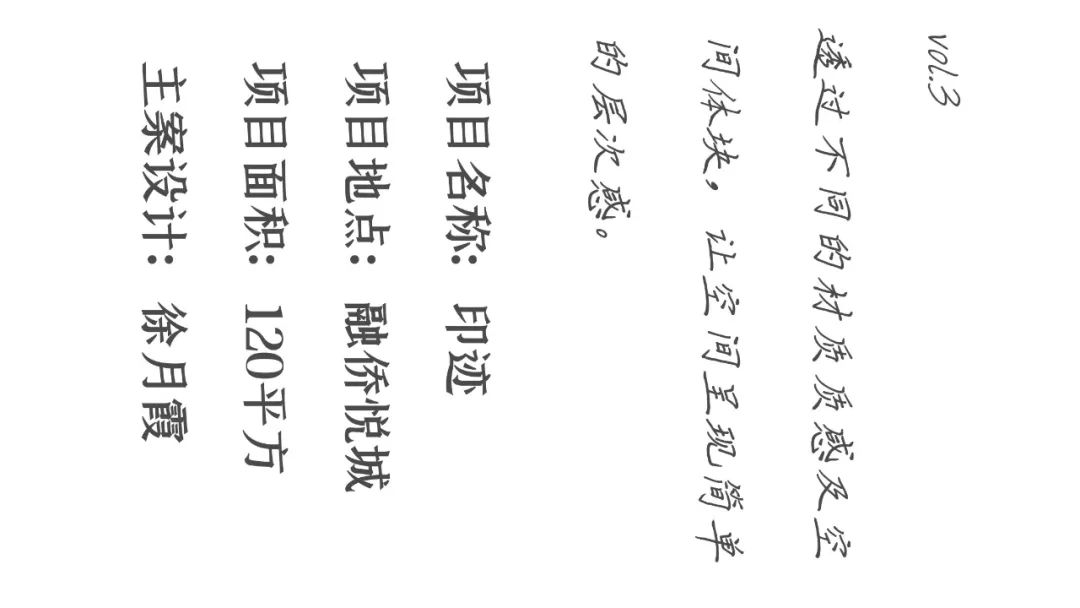 vol.3
透过不同的材质质感及空
间体块，让空间呈现简单
的层次感。
项目名称: 印迹
项目地点: 融侨悦城
项目面积: 120平方
主案设计: 徐月霞